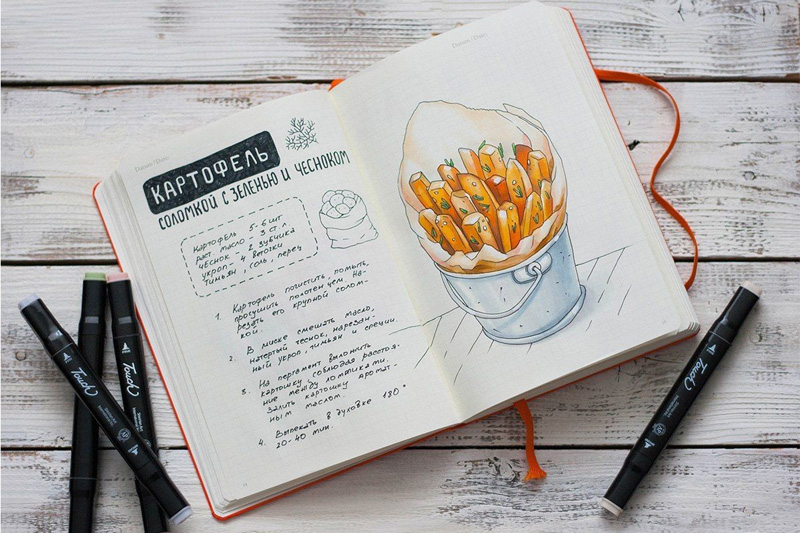 Datum / Date:
Datum / Date:
КАРТОФЕЛЬ
СОЛОМКОЙ С ЗЕЛЕНЬЮ И ЧЕСНОКОМ
КАРТОФЕЛЬ 5-6 ШТ
РАСТ МАСЛО - 3 СТ Л
ЧЕСНОК - 2 ЗУБЧИКА
УКРОП - 4 ВЕТОЧКИ
ТИМЬЯН, СОЛЬ, ПЕРЕЦ
1. Картофель почистить, помыть,
просушить полотенцем. На-
резать его крупной солом-
кой.
2. В миске смешать масло,
натертый чеснок, нарезан-
ный укроп, тимьян и специи.
3. На пергамент выложить
картошку соблюдая расстоя-
ние между ломтиками.
Залить картошку аромат-
ным маслом.
4. Выпекать в духовке 180°
20-40 мин.
Touch
Touch
Touch